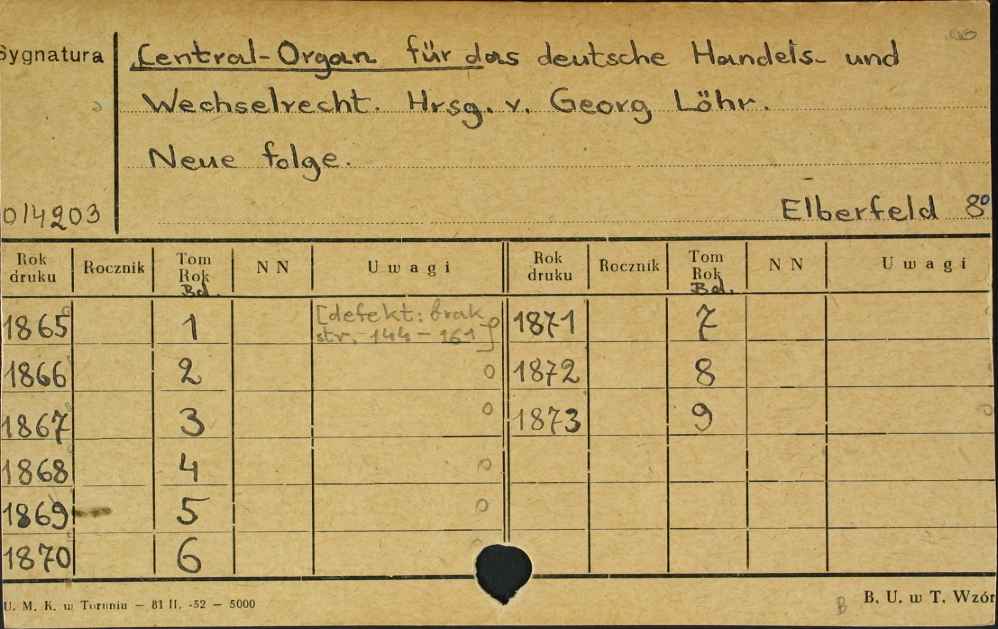 Sygnatura
Central-Organ für das deutsche Handels- und
Wechselrecht. Hrsg. v. Georg Löhr.
Neue folge.
Elberfeld 8º
014203
Rok druku Rocznik Tom Rok Bd. N N Uwagi Rok druku Rocznik Tom Rok Bd. N N Uwagi
1865 1 [defekt: brak str. 144-161] 1871 7
1866 2 1872 8
1867 3 1873 9
1868 4
1869 5
1870 6
U. M. K. w Toruniu — 81 II. -52 — 5000
B B. U. w T. Wzór